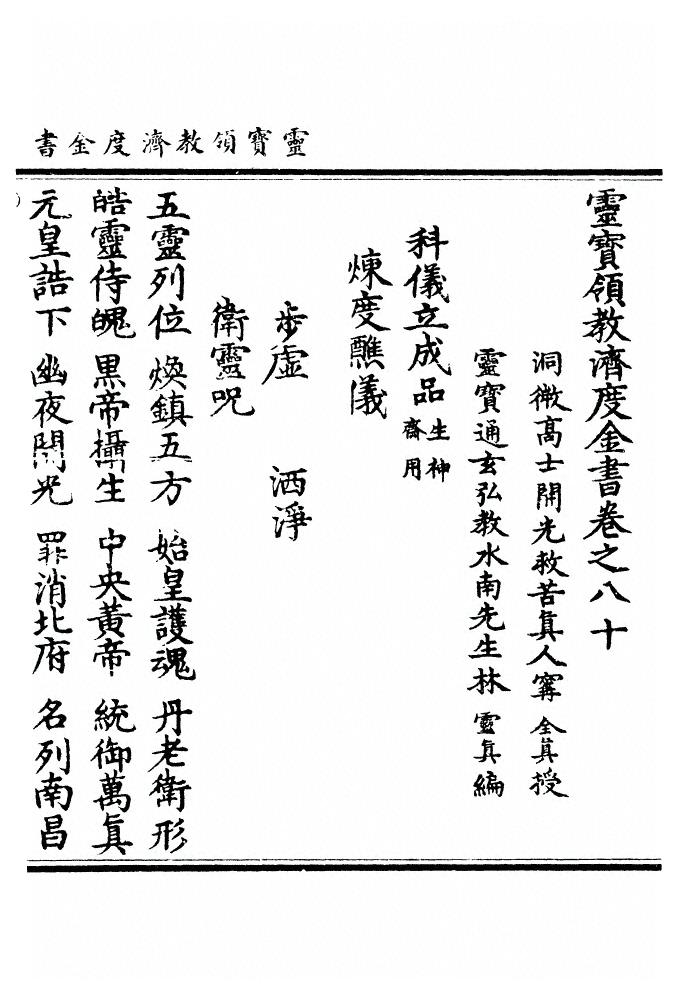 靈寶領教濟度金書
靈寶領教濟度金書卷之八十
洞微高士開光救苦眞人甯全眞授
靈寶通玄弘教水南先生林靈眞編
科儀立成品生神齋用
煉度醮儀
步虛　洒淨
衛靈呪
五靈列位　煥鎮五方　始皇護魂　丹老衛形
皓靈侍魄　黒帝攝生　中央黃帝　統御萬眞
元皇誥下　幽夜開光　罪消北府　名列南昌